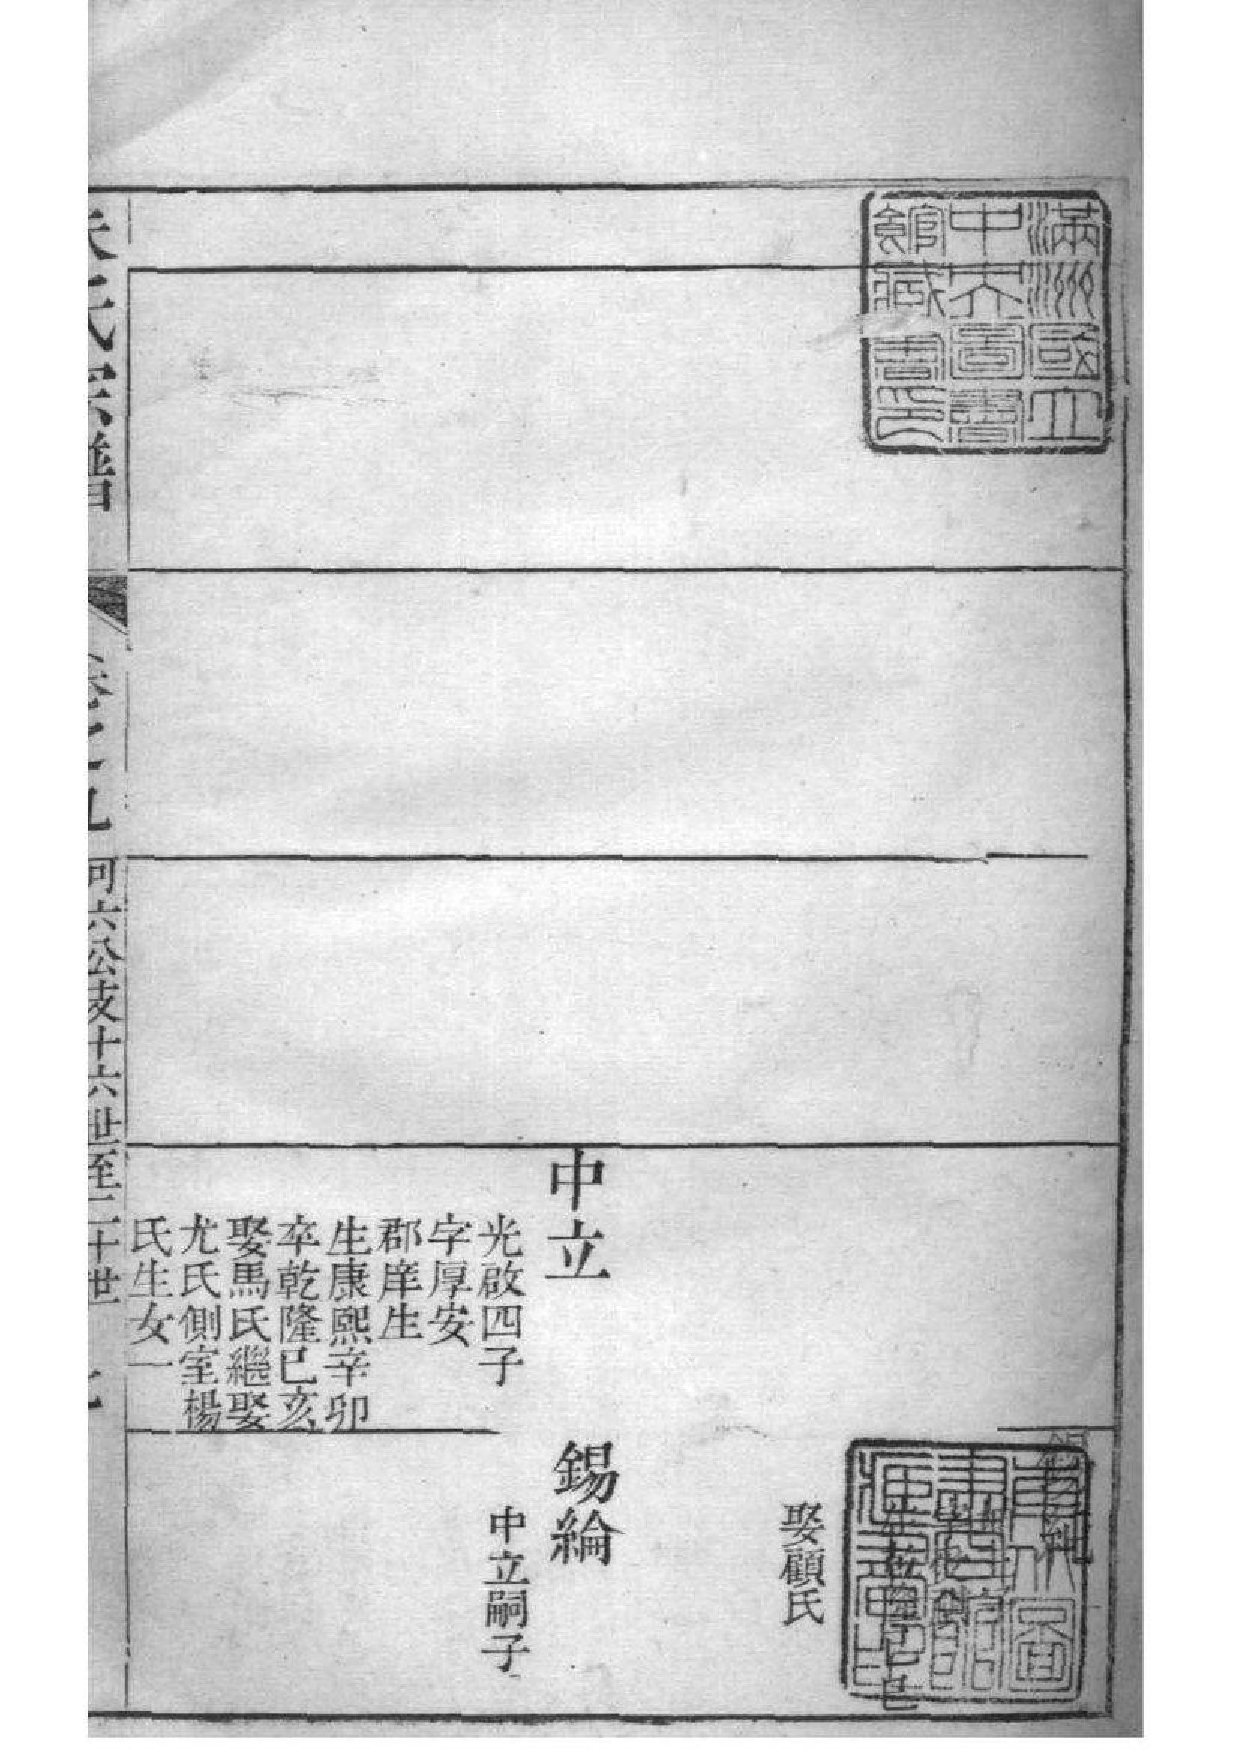 滿洲國立
中央圖書
館藏書印
中立
光啟四子
字厚安
郡庠生
生康熙辛卯
卒乾隆己亥
娶馬氏繼娶
尤氏側室楊
氏生女一
娶顧氏
錫綸
中立嗣子
氏宗譜
卷之九
河六公支十六世至二十世